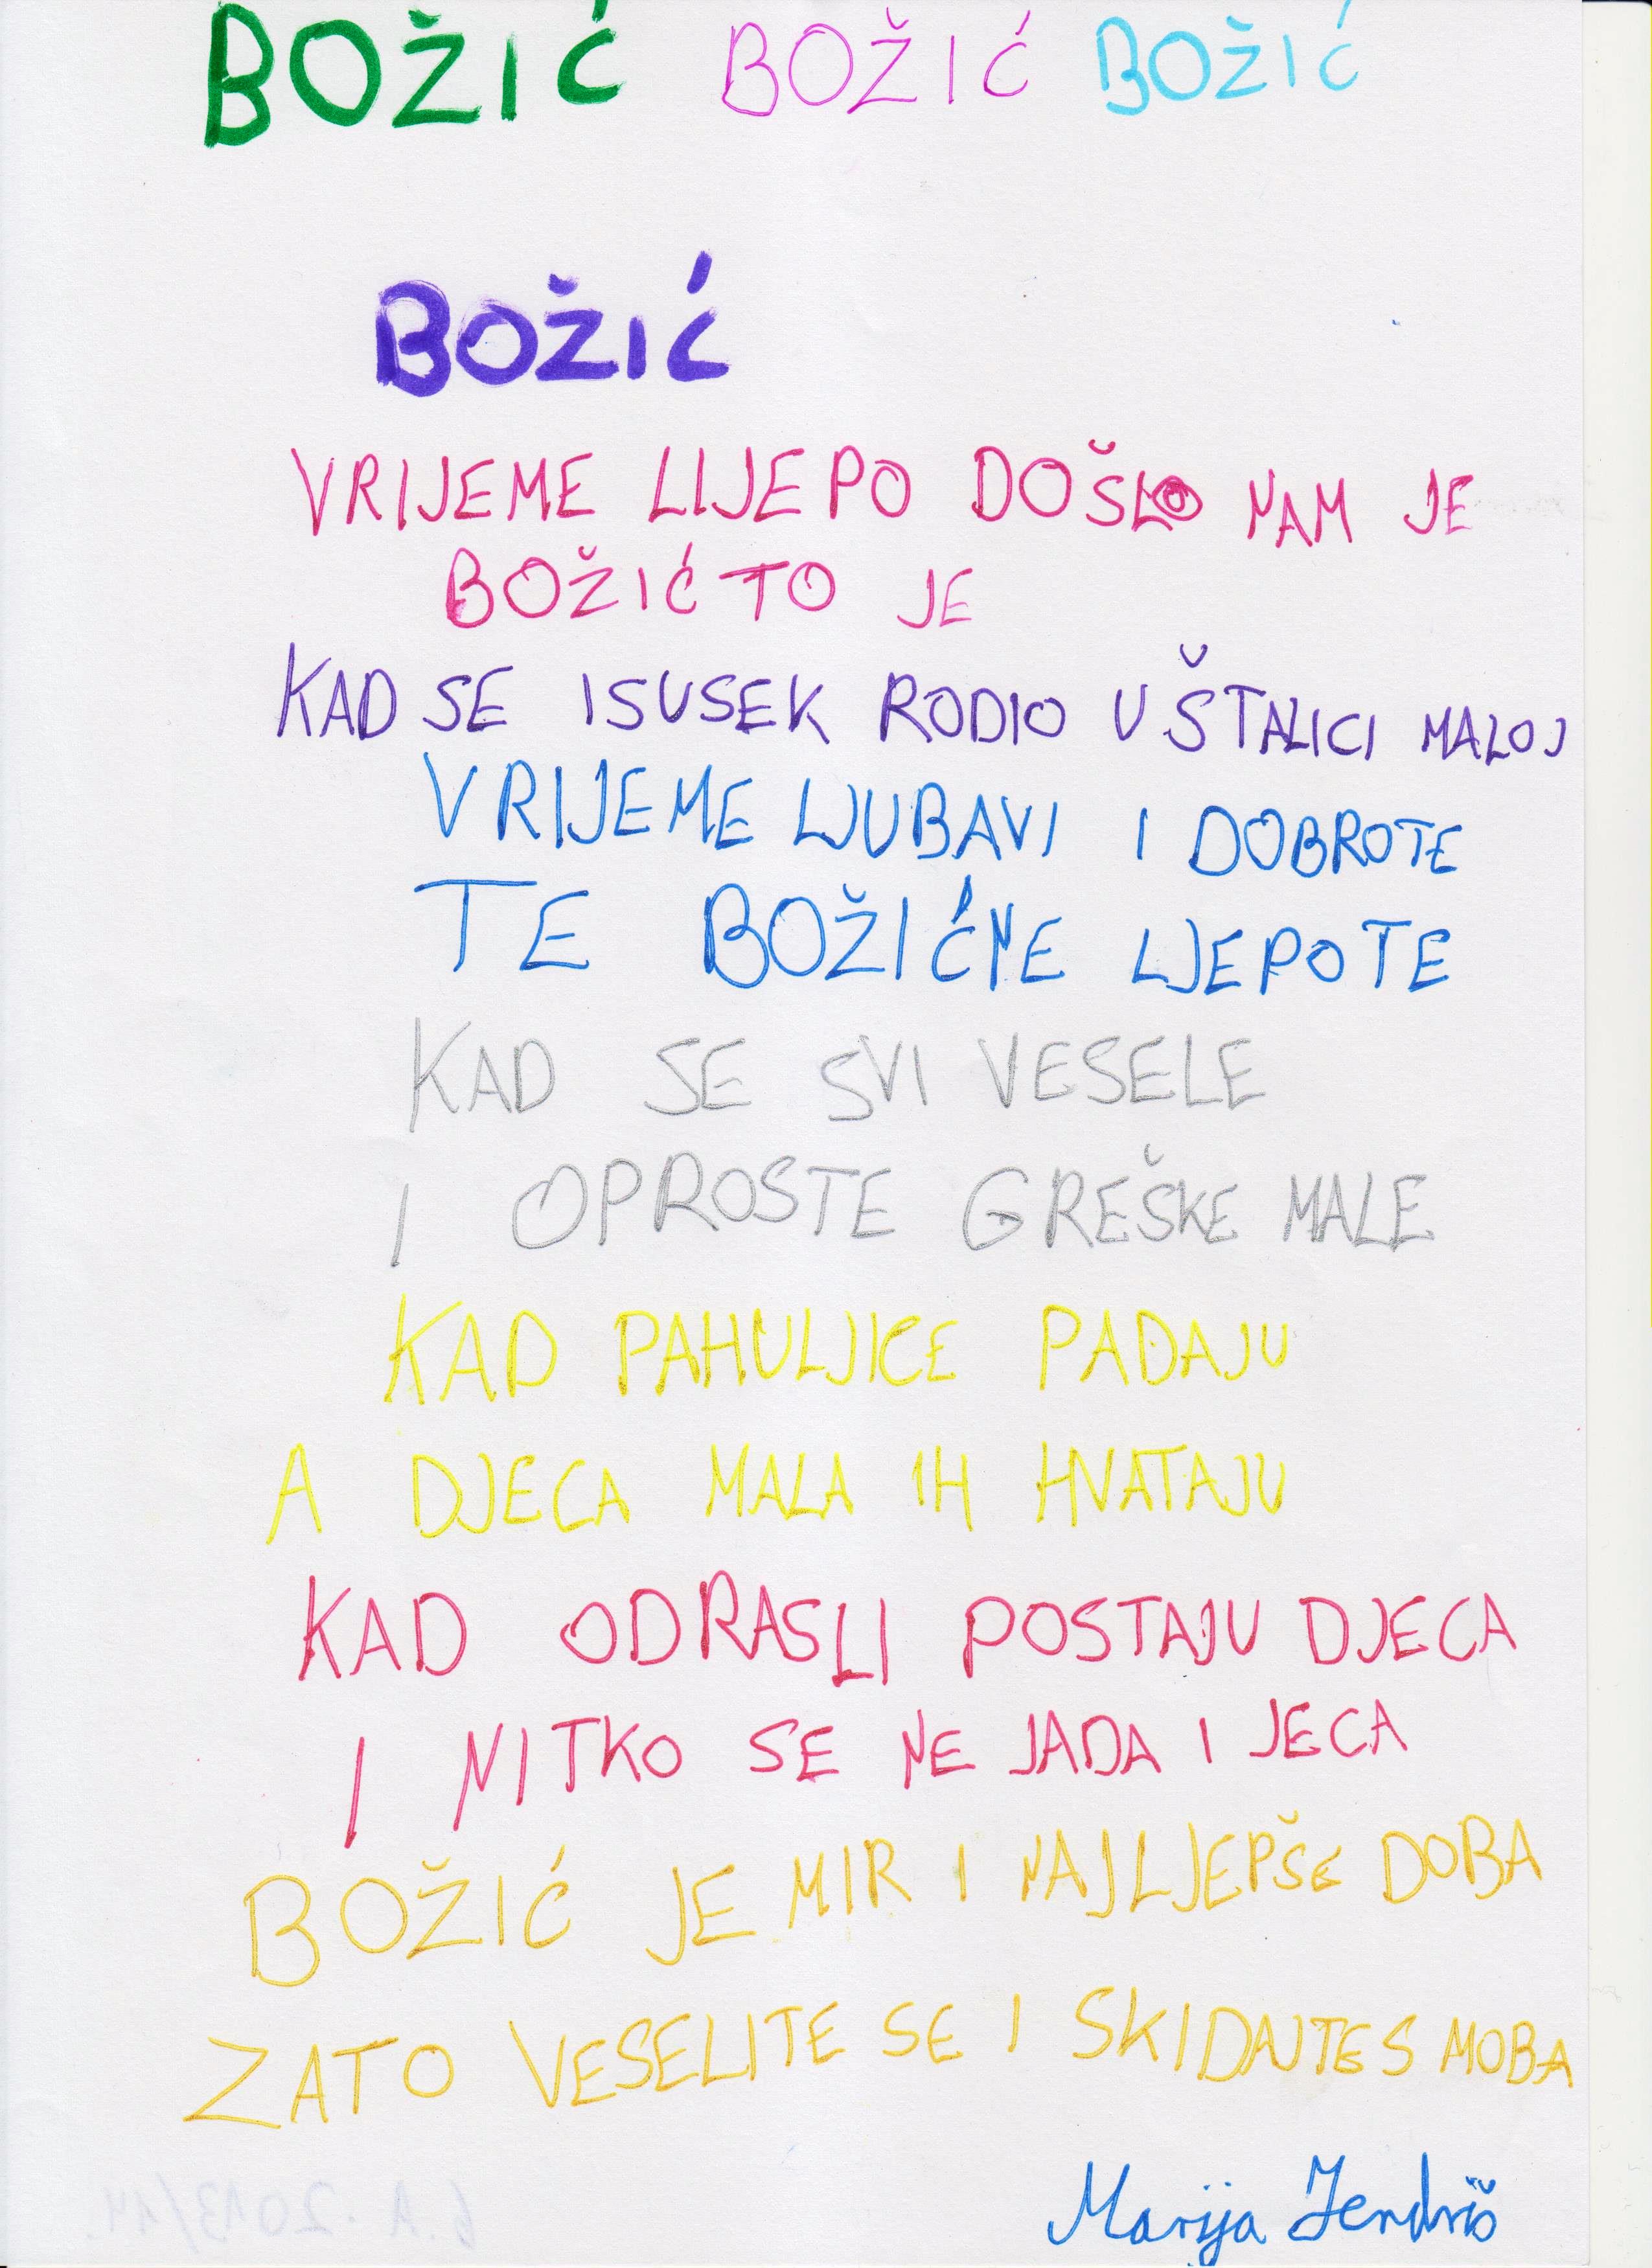 BOŽIĆ BOŽIĆ BOŽIĆ
BOŽIĆ
VRIJEME LIJEPO DOŠLO NAM JE
BOŽIĆ TO JE
KAD SE ISUSEK RODIO U ŠTALICI MALOJ
VRIJEME LJUBAVI I DOBROTE
TE BOŽIĆNE LJEPOTE
KAD SE SVI VESELE
I OPROSTE GREŠKE MALE
KAD PAHULJICE PADAJU
A DJECA MALA IH HVATAJU
KAD ODRASLI POSTAJU DJECA
I NITKO SE NE JADA I JECA
BOŽIĆ JE MIR I NAJLJEPŠE DOBA
ZATO VESELITE SE I SKIDAJTE S MOBA
Marija Jendriš
6.A. 2013/14.